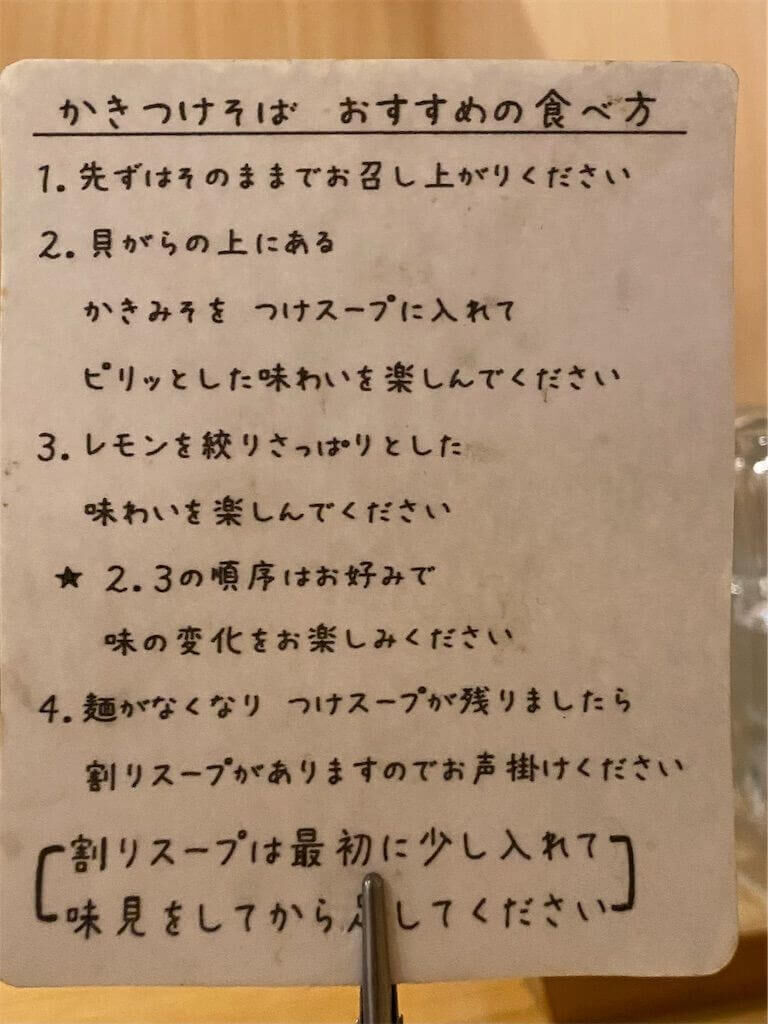 かきつけそば おすすめの食べ方
1. 先ずはそのままでお召し上がりください
2. 貝がらの上にある
かきみそを つけスープに入れて
ピリッとした味わいを楽しんでください
3. レモンを絞りさっぱりとした
味わいを楽しんでください
★ 2.3の順序はお好みで
味の変化をお楽しみください
4. 麺がなくなり つけスープが残りましたら
割りスープがありますのでお声掛けください
[割りスープは最初に少し入れて
味見をしてから足してください]